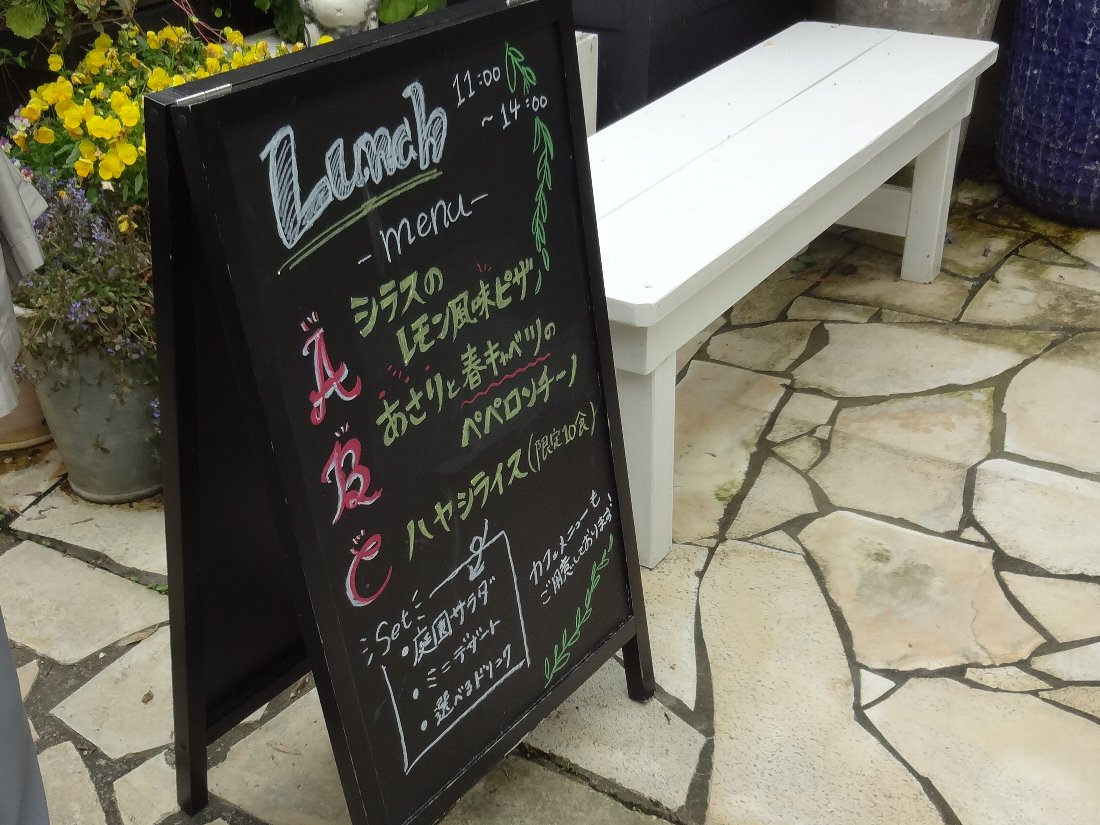 Lunch 11:00
~14:00
-menu-
A シラスの
レモン風味ピザ
B あさりと春キャベツの
ペペロンチーノ
C ハヤシライス(限定10食)
Set
・庭園サラダ
・ミニデザート
・選べるドリンク
カフェメニューも
ご用意しております!